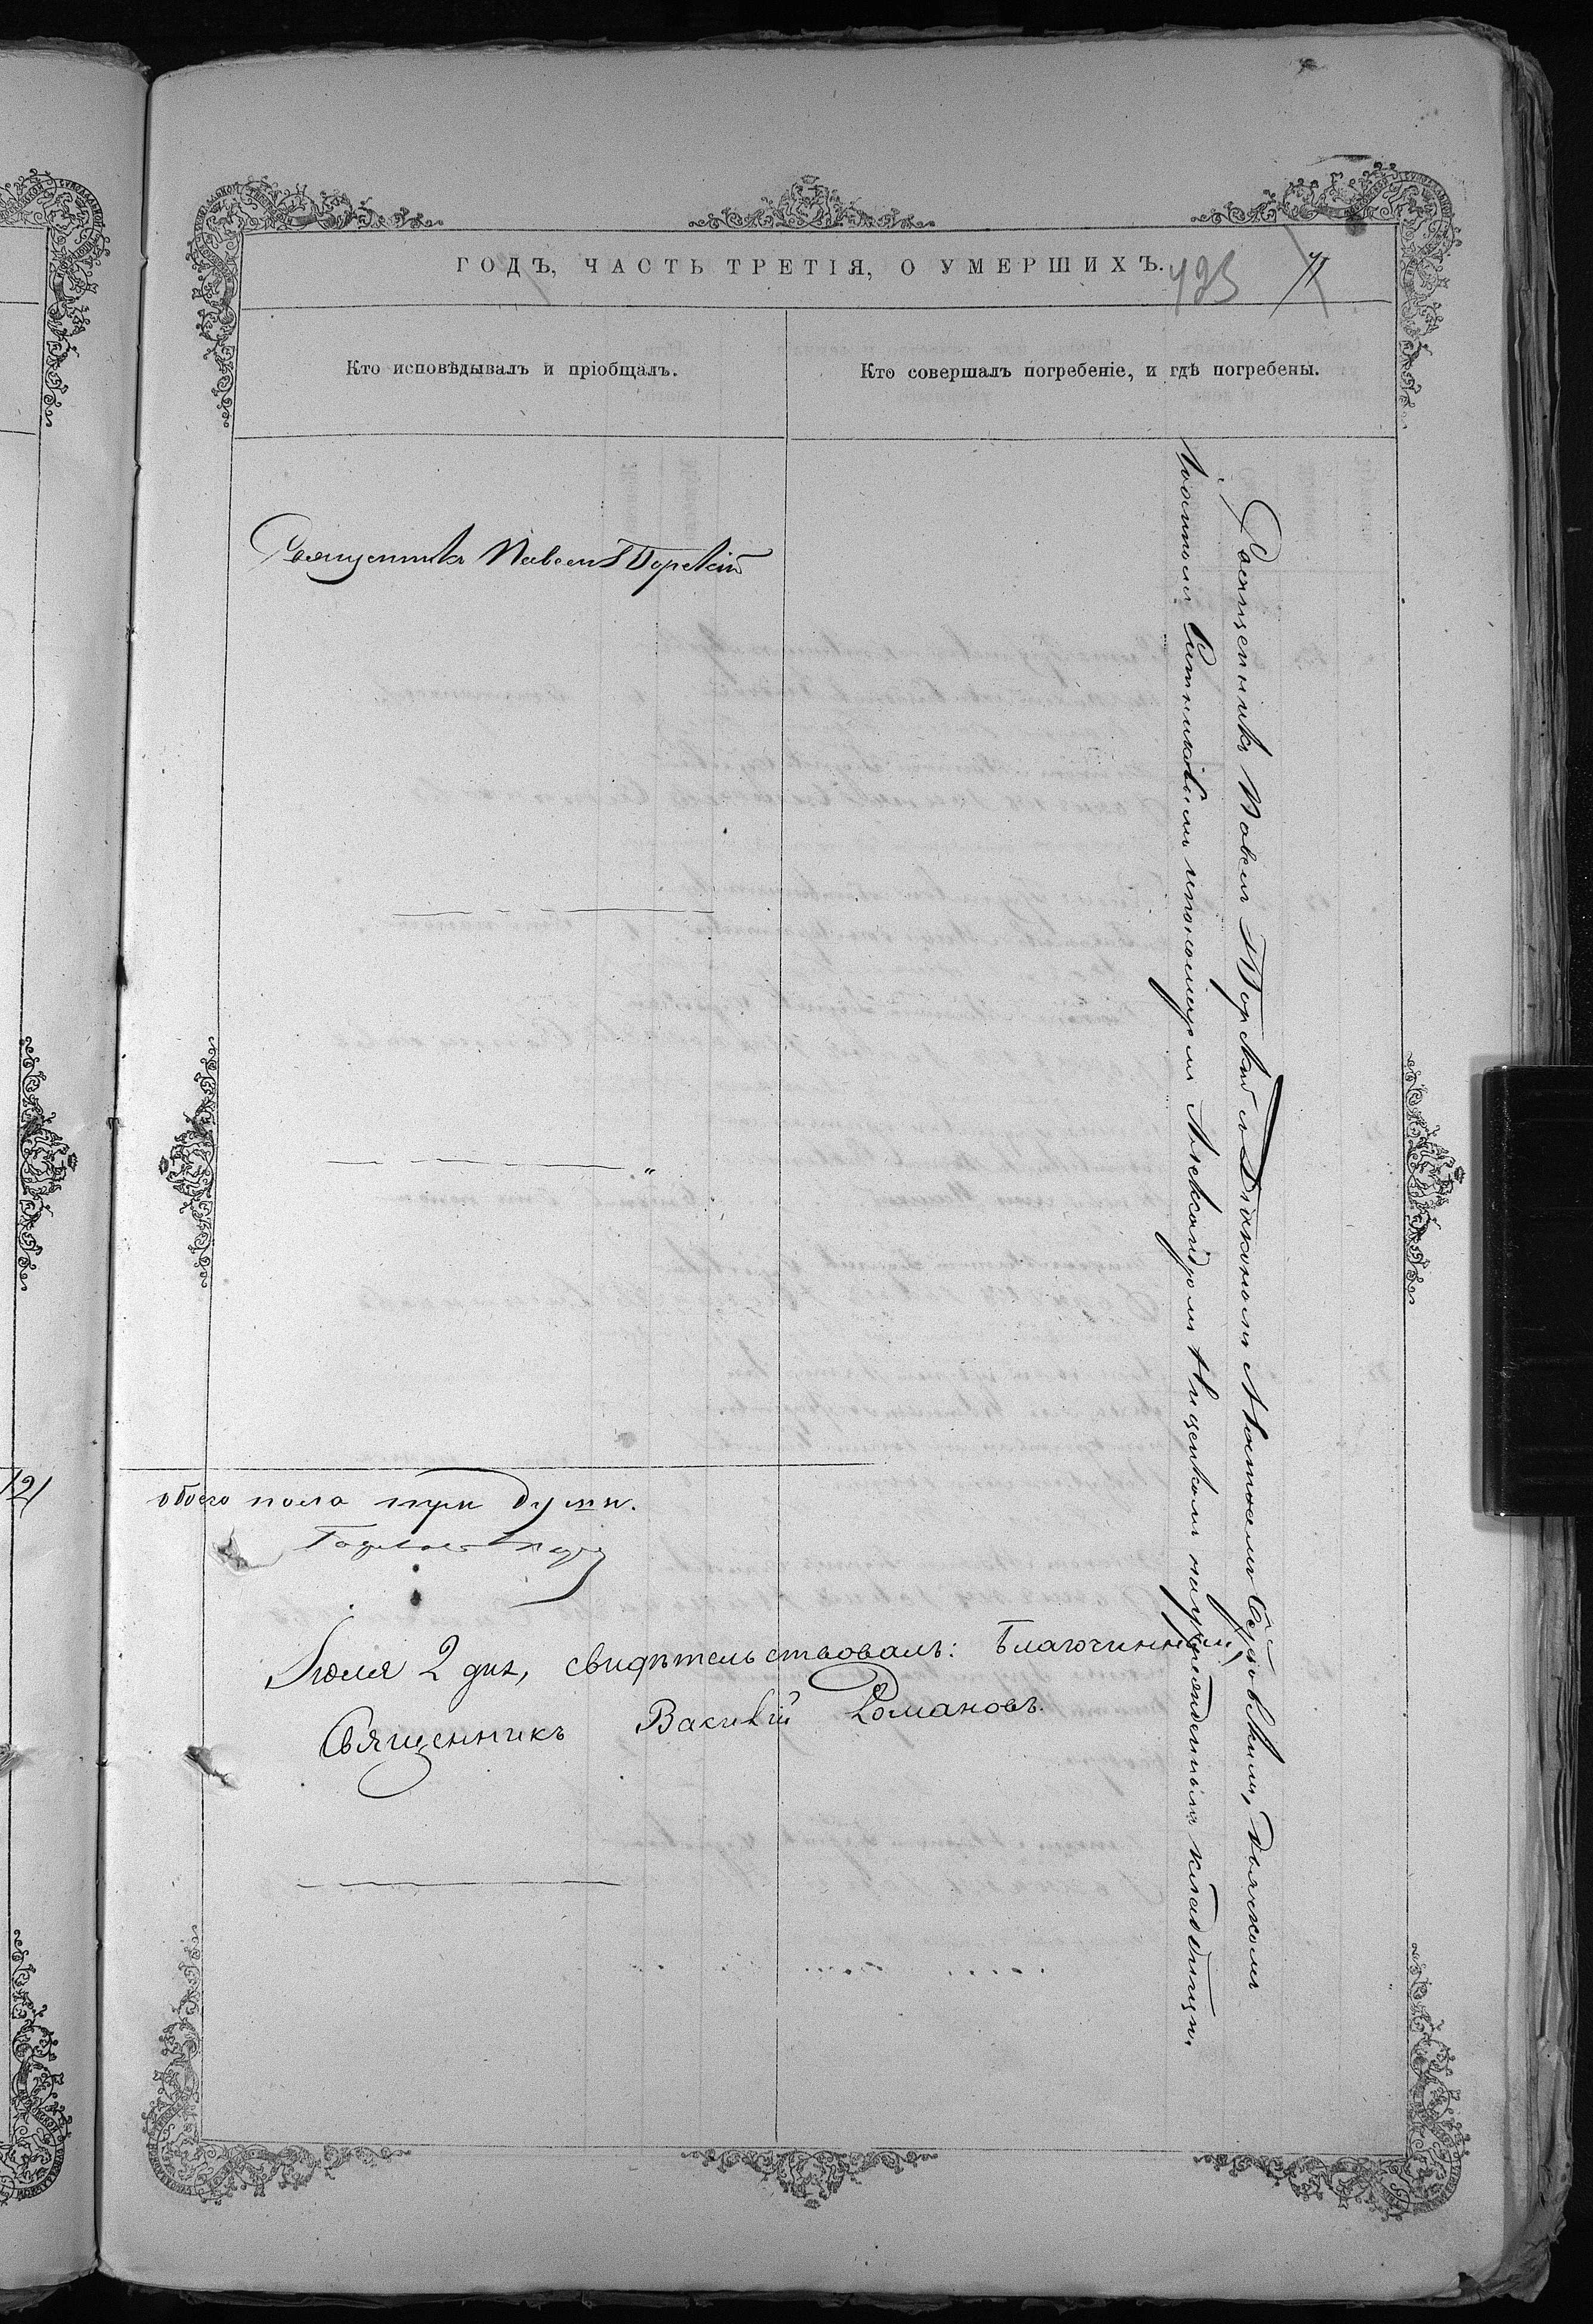 ГОДЪ, ЧАСТЬ ТРЕТІЯ, О УМЕРШИХЪ.
495
71
Кто исповѣдывалъ и пріобщалъ.
Кто совершалъ погребеніе, и гдѣ погребены.
Священникъ Павелъ Горскій
Священникъ Павелъ Горскій съ Діакономъ Аѳанасіемъ дьячкомъ
Ситниковымъ и пономаремъ Александромъ на учрежденныхъ кладбищи.
121
обоего пола три души.
Іюля 2 дня, свидѣтельствовалъ: Благочинный,
Священникъ Василій Романовъ.